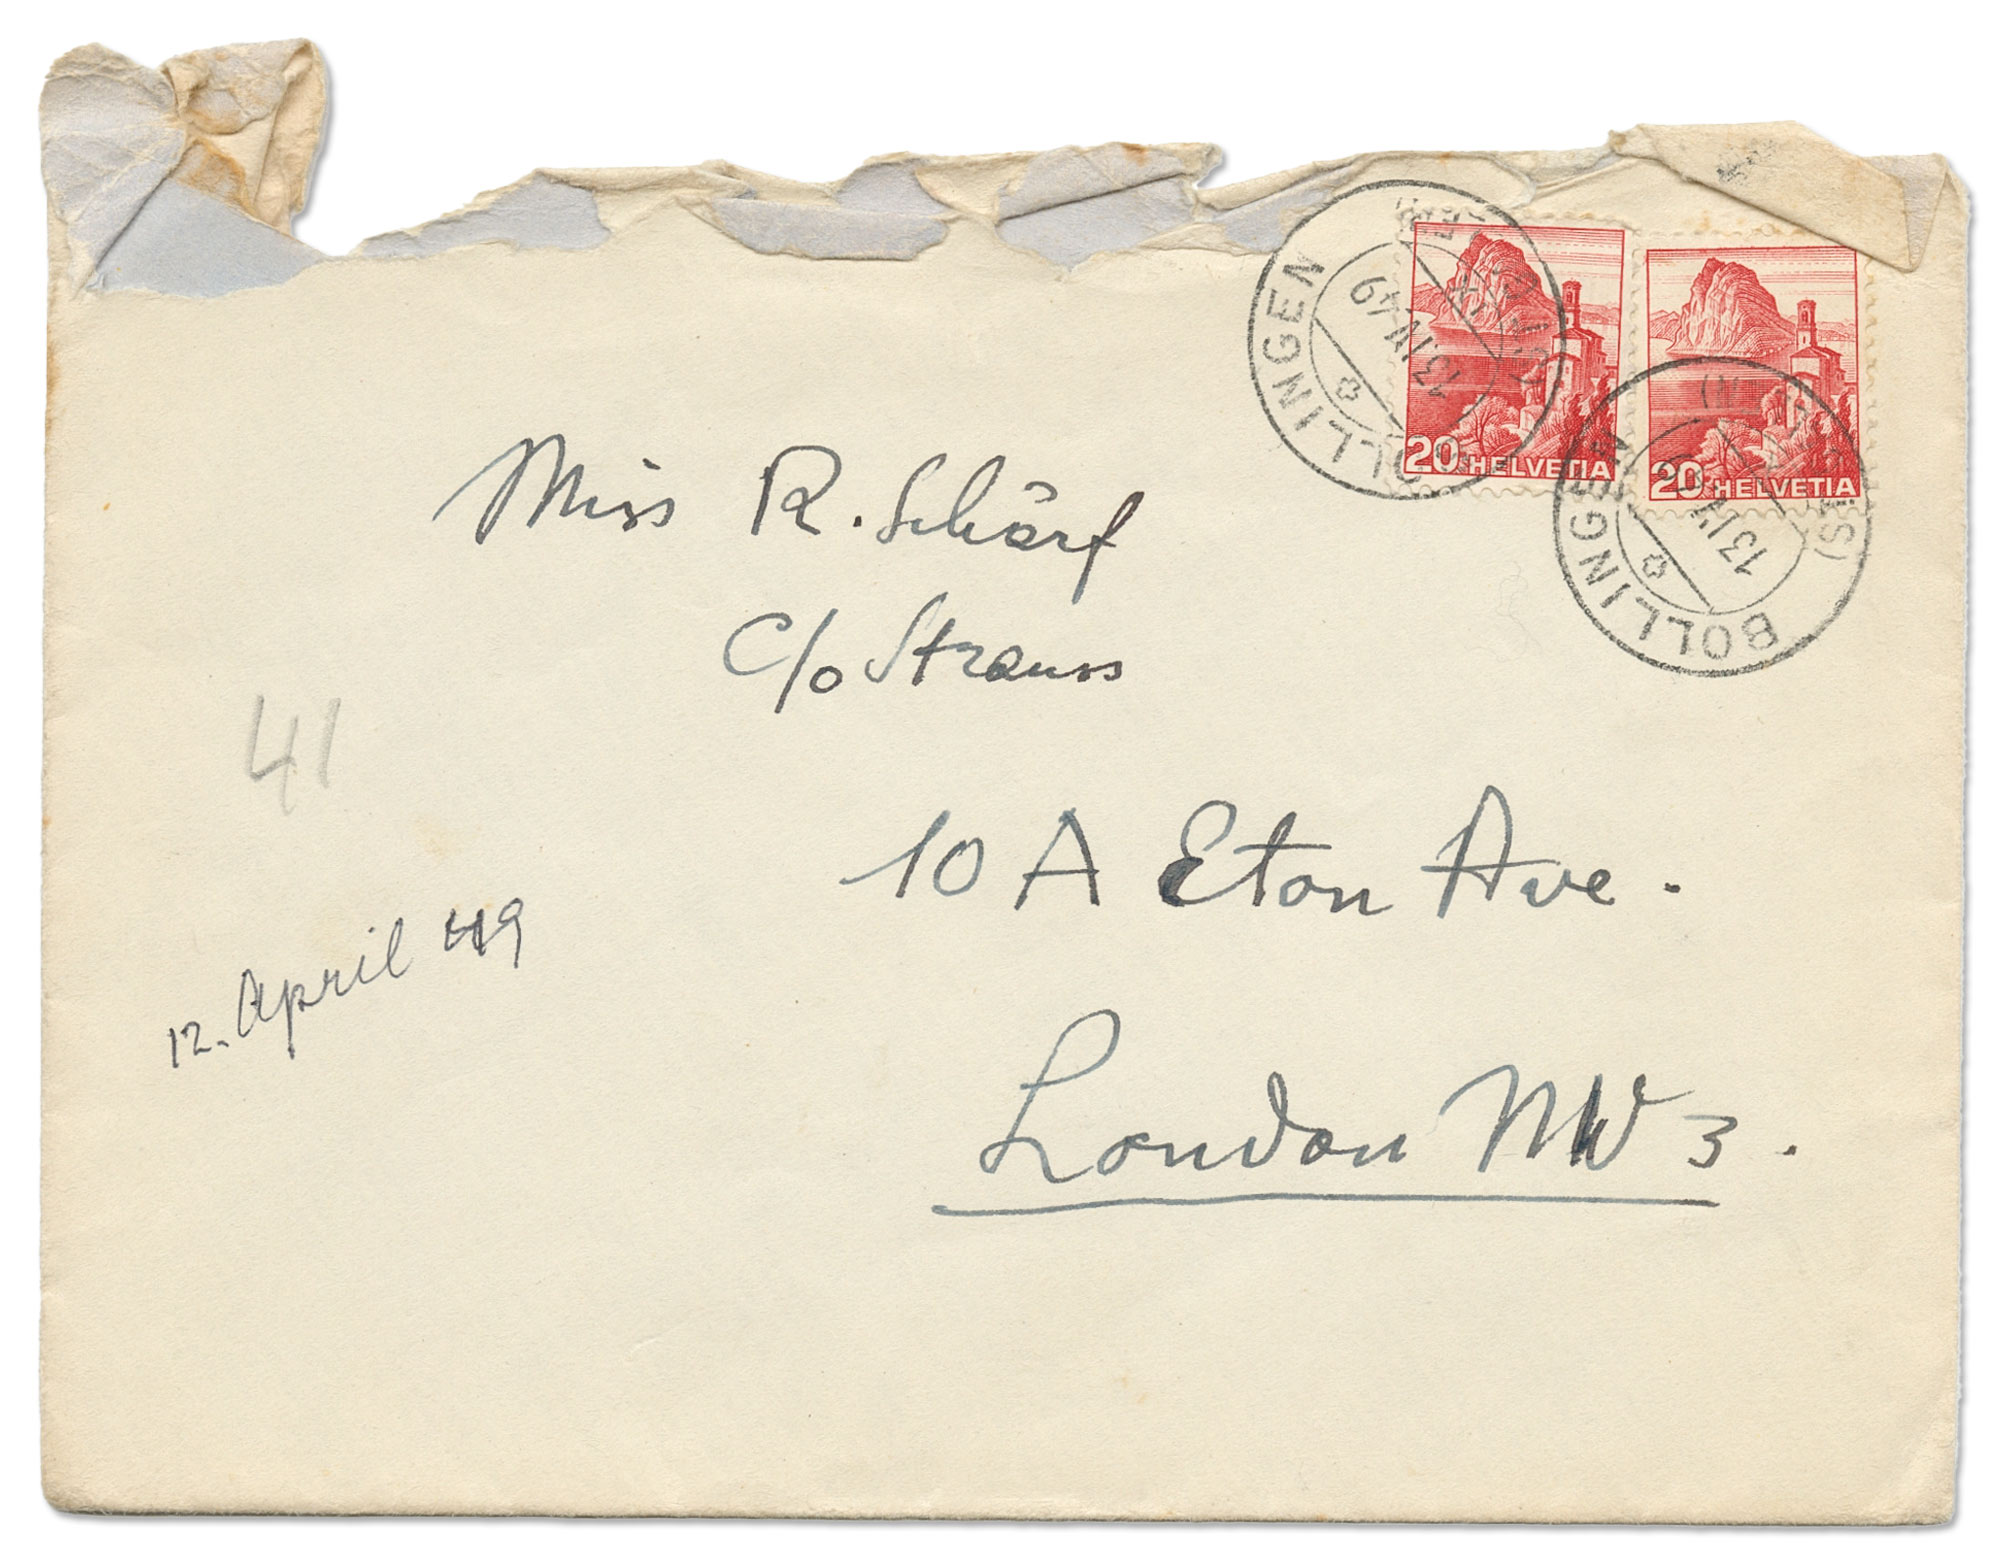 BOLLINGEN
13.IV.49
20 HELVETIA
20 HELVETIA
BOLLINGEN
13.IV
Miss R. Schärf
c/o Strauss
41
10 A Eton Ave.
12. April 49
London NW 3.